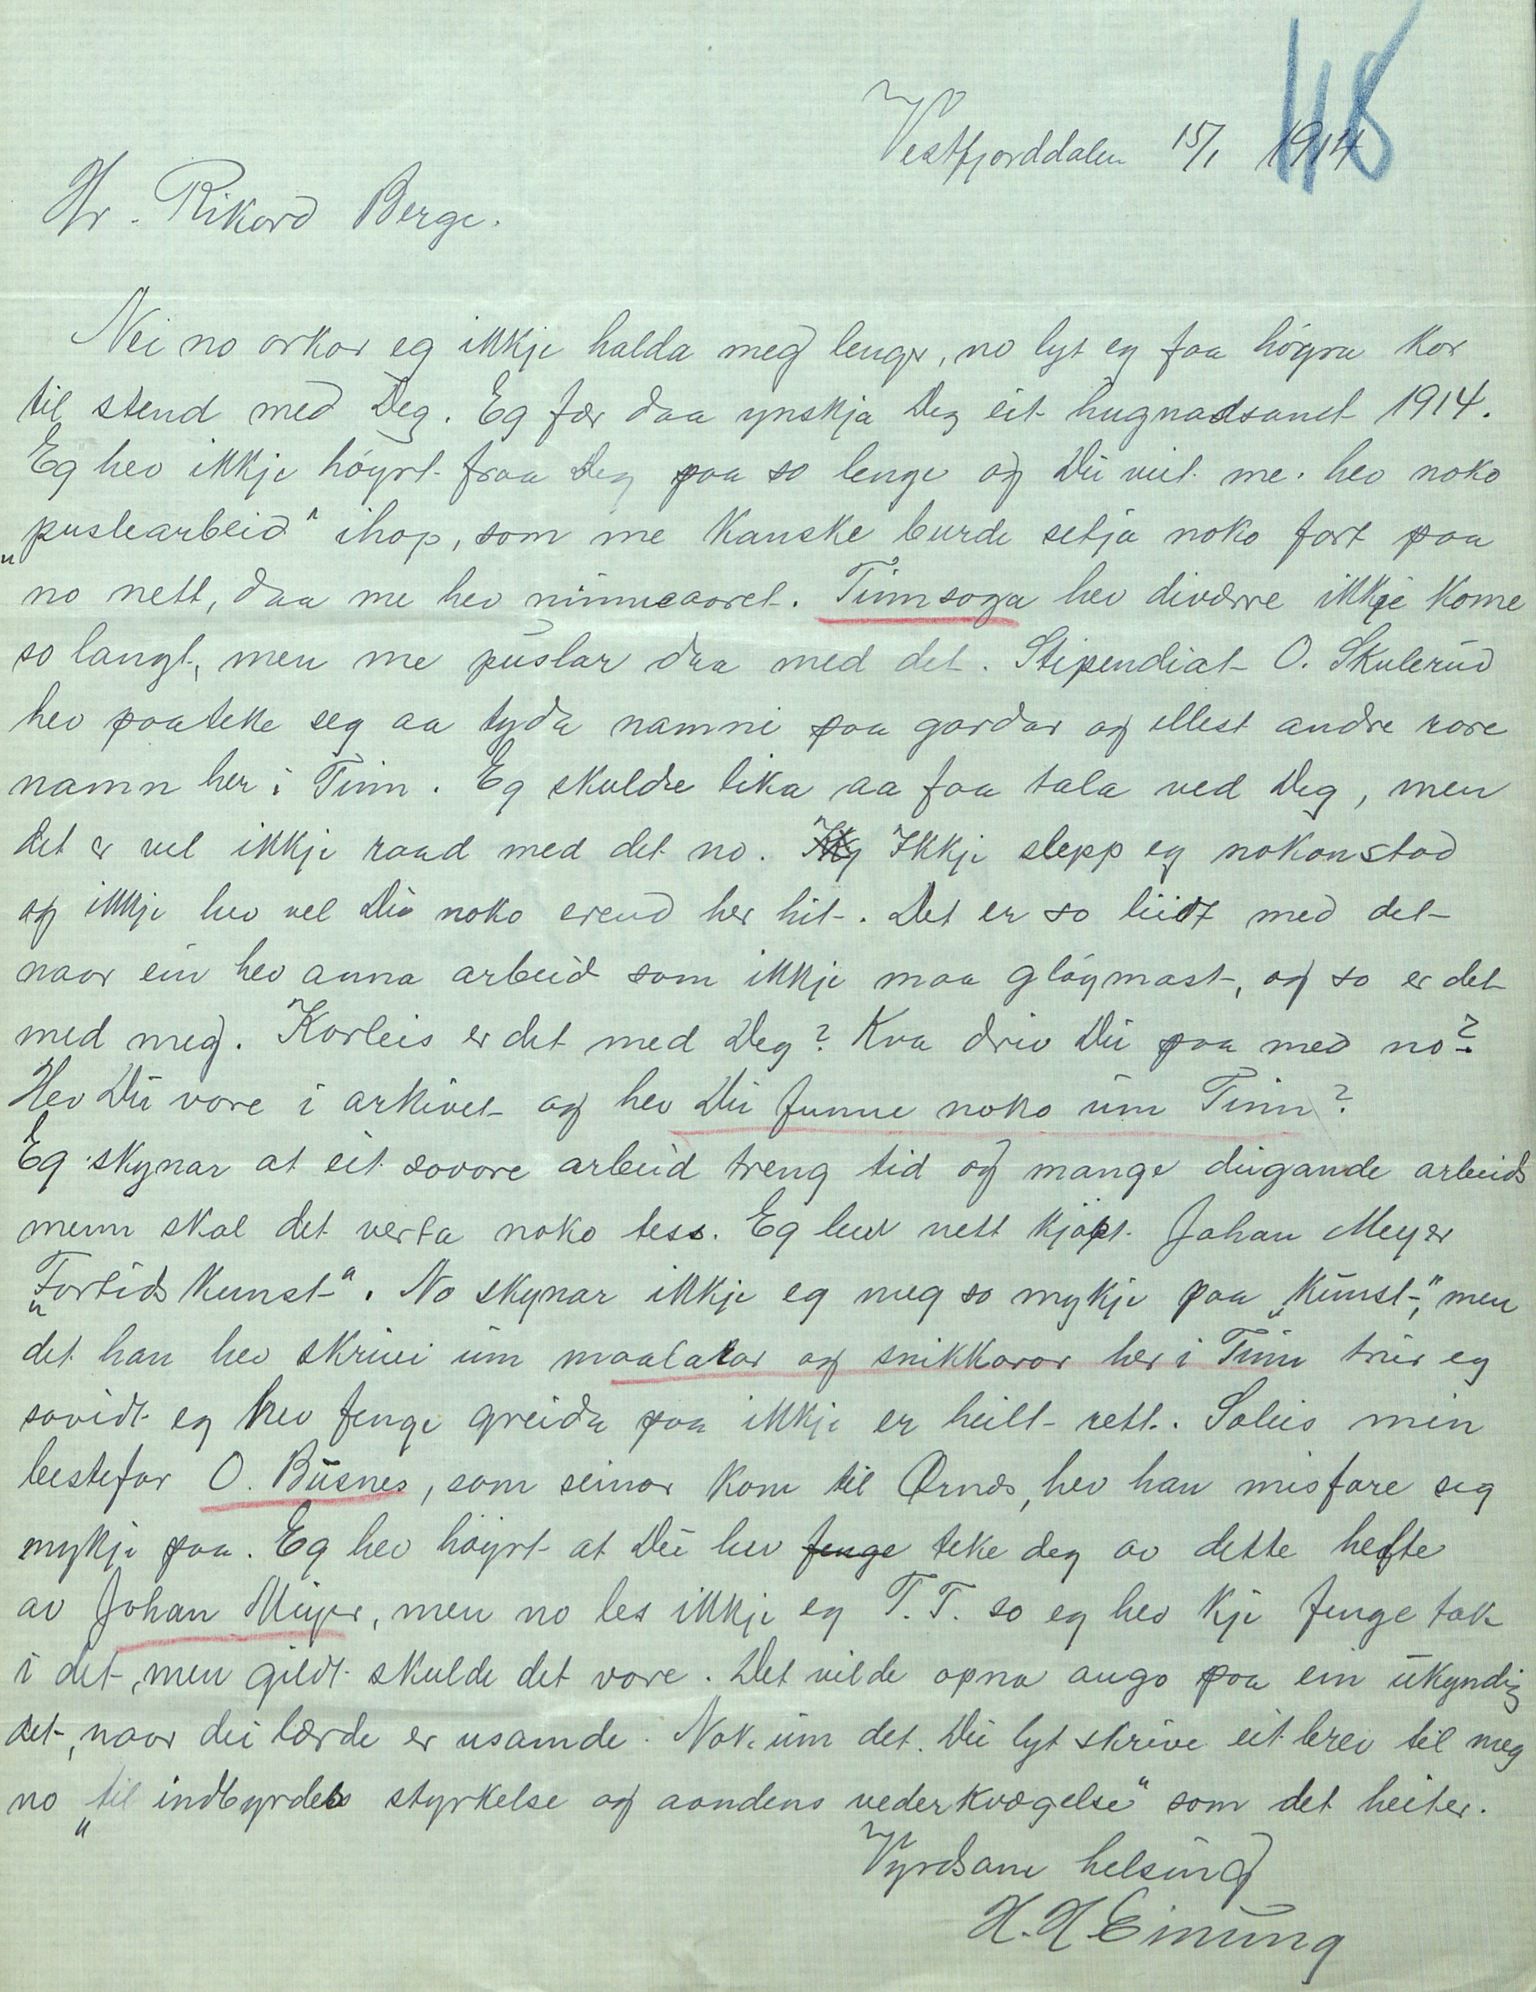 118
Vestfjorddalen 15/1 1914
Hr. Rikard Berge.
Nei no orkar eg ikkje halda meg lenger, no lyt eg faa høyra kor
til stend med Deg. Eg fær daa ynskja Deg eit hugnadsamt 1914.
Eg hev ikkje høyrt fraa Deg paa so lenge og Du veit me hev noko
„puslearbeid" ihop, som me kanske burde setja noko fort paa
no nett, daa me hev minneaaret. Tinnsoga hev diverre ikkje kome
so langt, men me puslar daa med det. Stipendiat O. Skulerud
hev paateke seg aa tyda namni paa gardar og ellest andre rare
namn her i Tinn. Eg skulde lika aa faa tala ved Deg, men
det er vel ikkje raad med det no. Ikkje slepp eg nokonstad
og ikkje hev vel Du noko erend her hit. Det er so leidt med det
naar ein hev anna arbeid som ikkje maa gløymast, og so er det
med meg. Korleis er det med Deg? Kva driv Du paa med no?
Hev Du vore i arkivet og hev Du funne noko um Tinn?
Eg skynar at eit sovore arbeid treng tid og mange dugande arbeids
menn skal det verta noko tess. Eg hev nett kjøpt Johan Meyer
„Fortids Kunst". No skynar ikkje eg meg so mykje paa „kunst", men
det han hev skrivi um maalarar og snikkarar her i Tinn trur eg
sovidt eg hev fenge greida paa ikkje er heilt rett. Soleis min
bestefar O. Busnes, som seinar kom til Ørnes, hev han misfare seg
mykje paa. Eg hev høyrt at Du hev fenge teke deg av dette hefte
av Johan Meyer, men no les ikkje eg T. T. so eg hev kje fenge tak
i det, men gildt skulde det vore. Det vilde opna augo paa ein ukyndig
det, naar dei lærde er usamde. Nok um det. Du lyt skrive eit brev til meg
no „til indbyrdes styrkelse og aandens vederkvægelse" som det heiter.
Vyrdsam helsing
H. H. Einung